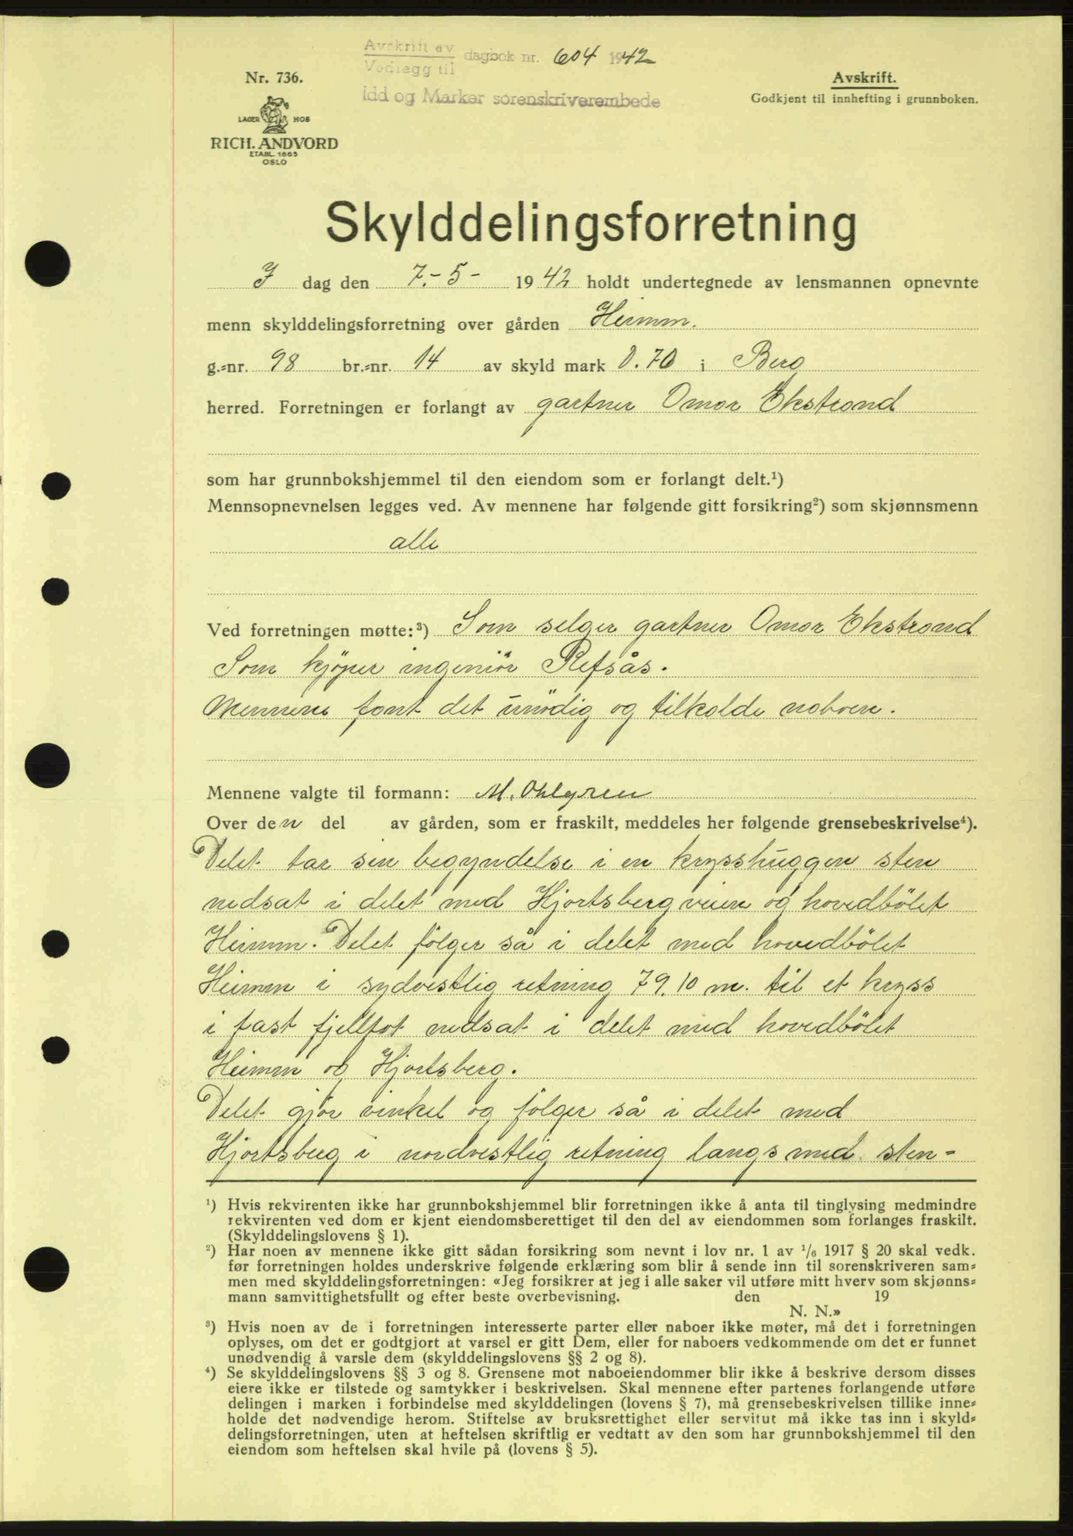 Avskrift av
Vedlegg til dagbok nr. 604 1942
Idd og Marker sorenskriverembede
Nr. 736.
LAGER HOS
RICH. ANDVORD
ETABL. 1865
OSLO
Avskrift.
Godkjent til innhefting i grunnboken.
Skylddelingsforretning
I dag den 7.-5- 1942 holdt undertegnede av lensmannen opnevnte
menn skylddelingsforretning over gården Heimm.
g.-nr. 98 br.-nr. 14 av skyld mark 0.70 i Berg
herred. Forretningen er forlangt av gartner Omar Ekstrand
som har grunnbokshjemmel til den eiendom som er forlangt delt.¹)
Mennsopnevnelsen legges ved. Av mennene har følgende gitt forsikring²) som skjønnsmenn
alle
Ved forretningen møtte:³) Som selger gartner Omar Ekstrand
Som kjøper ingeniør Refsås.
Mennene fant det unødig og tilkalde naboen.
Mennene valgte til formann: M. Ohlgren
Over den del av gården, som er fraskilt, meddeles her følgende grensebeskrivelse⁴).
Delet tar sin begyndelse i en krysshuggen sten
nedsat i delet med Hjortsbergveien og hovedbølet
Heimm. Delet følger så i delet med hovedbølet
Heimm i sydvestlig retning 79.10 m. til et kryss
i fast fjellfot nedsat i delet med hovedbølet
Heimm og Hjortsberg.
Delet gjør vinkel og følger så i delet med
Hjortsberg i nordvestlig retning langsmed sten-
¹) Hvis rekvirenten ikke har grunnbokshjemmel blir forretningen ikke å anta til tinglysing medmindre
rekvirenten ved dom er kjent eiendomsberettiget til den del av eiendommen som forlanges fraskilt.
(Skylddelingslovens § 1).
²) Har noen av mennene ikke gitt sådan forsikring som nevnt i lov nr. 1 av 1/6 1917 § 20 skal vedk.
før forretningen holdes underskrive følgende erklæring som blir å sende inn til sorenskriveren sam-
men med skylddelingsforretningen: «Jeg forsikrer at jeg i alle saker vil utføre mitt hverv som skjønns-
mann samvittighetsfullt og efter beste overbevisning. den 19
N. N.»
³) Hvis noen av de i forretningen interesserte parter eller naboer ikke møter, må det i forretningen
oplyses, om det er godtgjort at varsel er gitt Dem, eller for naboers vedkommende om det er funnet
unødvendig å varsle dem (skylddelingslovens §§ 2 og 8).
⁴) Se skylddelingslovens §§ 3 og 8. Grensene mot naboeiendommer blir ikke å beskrive dersom disses
eiere ikke er tilstede og samtykker i beskrivelsen. Skal mennene efter partenes forlangende utføre
delingen i marken i forbindelse med skylddelingen (lovens § 7), må grensebeskrivelsen tillike inne-
holde det nødvendige herom. Stiftelse av bruksrettighet eller servitut må ikke tas inn i skyld-
delingsforretningen, uten at heftelsen skriftlig er vedtatt av den som har grunnbokshjemmel til den
eiendom som heftelsen skal hvile på (lovens § 5).